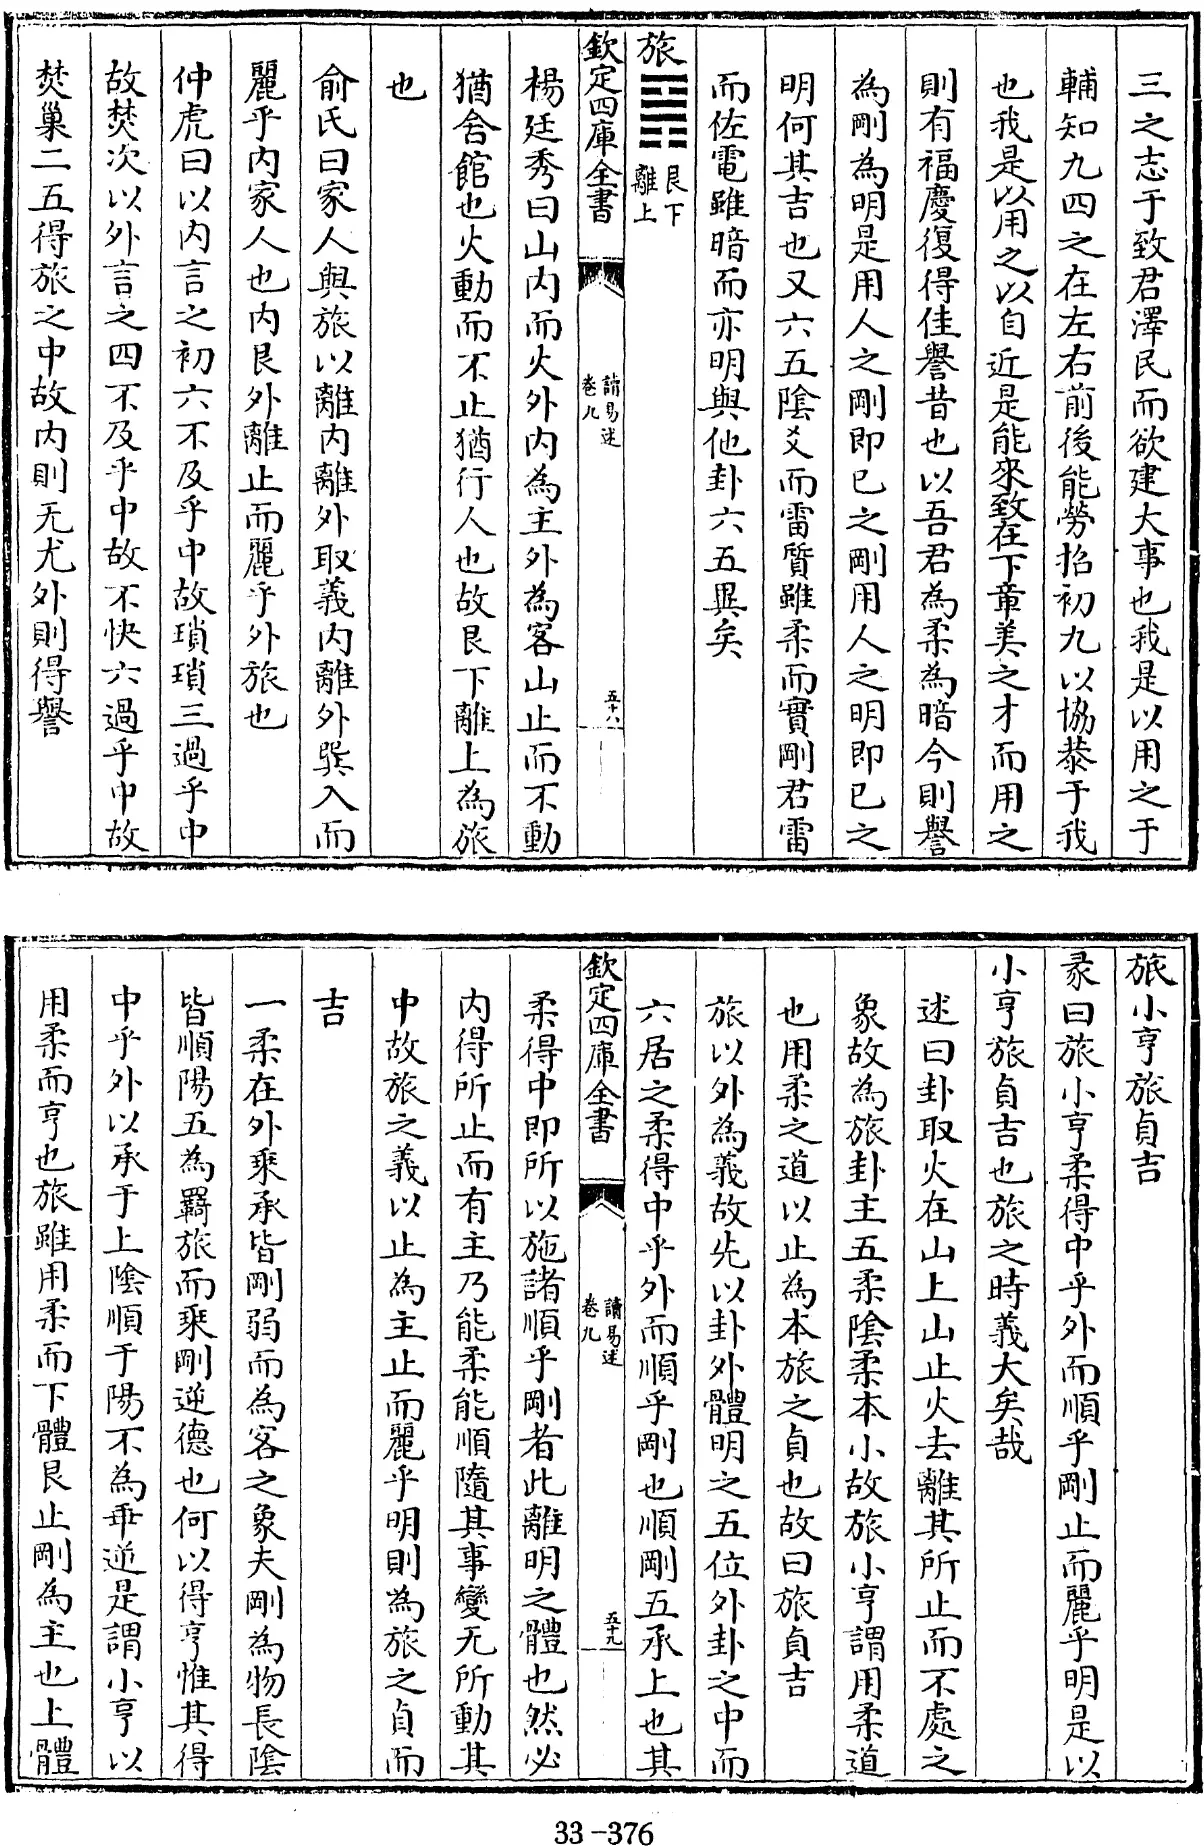 三之志于致君澤民而欲建大事也我是以用之于
輔知九四之在左右前後能勞招初九以協恭于我
也我是以用之以自近是能來致在下章美之才而用之
則有福慶復得佳譽昔也以吾君為柔為暗今則譽
為剛為明是用人之剛即已之剛用人之明即已之
明何其吉也又六五陰爻而雷質雖柔而實剛君雷
而佐電雖暗而亦明與他卦六五異矣
旅䷷艮下離上
欽定四庫全書
讀易述
卷九
五十八
楊廷秀曰山内而火外内為主外為客山止而不動
猶舍館也火動而不止猶行人也故艮下離上為旅
也
俞氏曰家人與旅以離内離外取義内離外巽入而
麗乎内家人也内艮外離止而麗乎外旅也
仲虎曰以内言之初六不及乎中故瑣瑣三過乎中
故焚次以外言之四不及乎中故不快六過乎中故
焚巢二五得旅之中故内則无尤外則得譽
旅小亨旅貞吉
彖曰旅小亨柔得中乎外而順乎剛止而麗乎明是以
小亨旅貞吉也旅之時義大矣哉
述曰卦取火在山上山止火去離其所止而不處之
象故為旅卦主五柔陰柔本小故旅小亨謂用柔道
也用柔之道以止為本旅之貞也故曰旅貞吉
旅以外為義故先以卦外體明之五位外卦之中而
六居之柔得中乎外而順乎剛也順剛五承上也其
欽定四庫全書
讀易述
卷九
五十九
柔得中即所以施諸順乎剛者此離明之體也然必
内得所止而有主乃能柔能順隨其事變无所動其
中故旅之義以止為主止而麗乎明則為旅之貞而
吉
一柔在外乘承皆剛弱而為客之象夫剛為物長陰
皆順陽五為羇旅而乘剛逆德也何以得亨惟其得
中乎外以承于上陰順于陽不為乖逆是謂小亨以
用柔而亨也旅雖用柔而下體艮止剛為主也上體
33-376